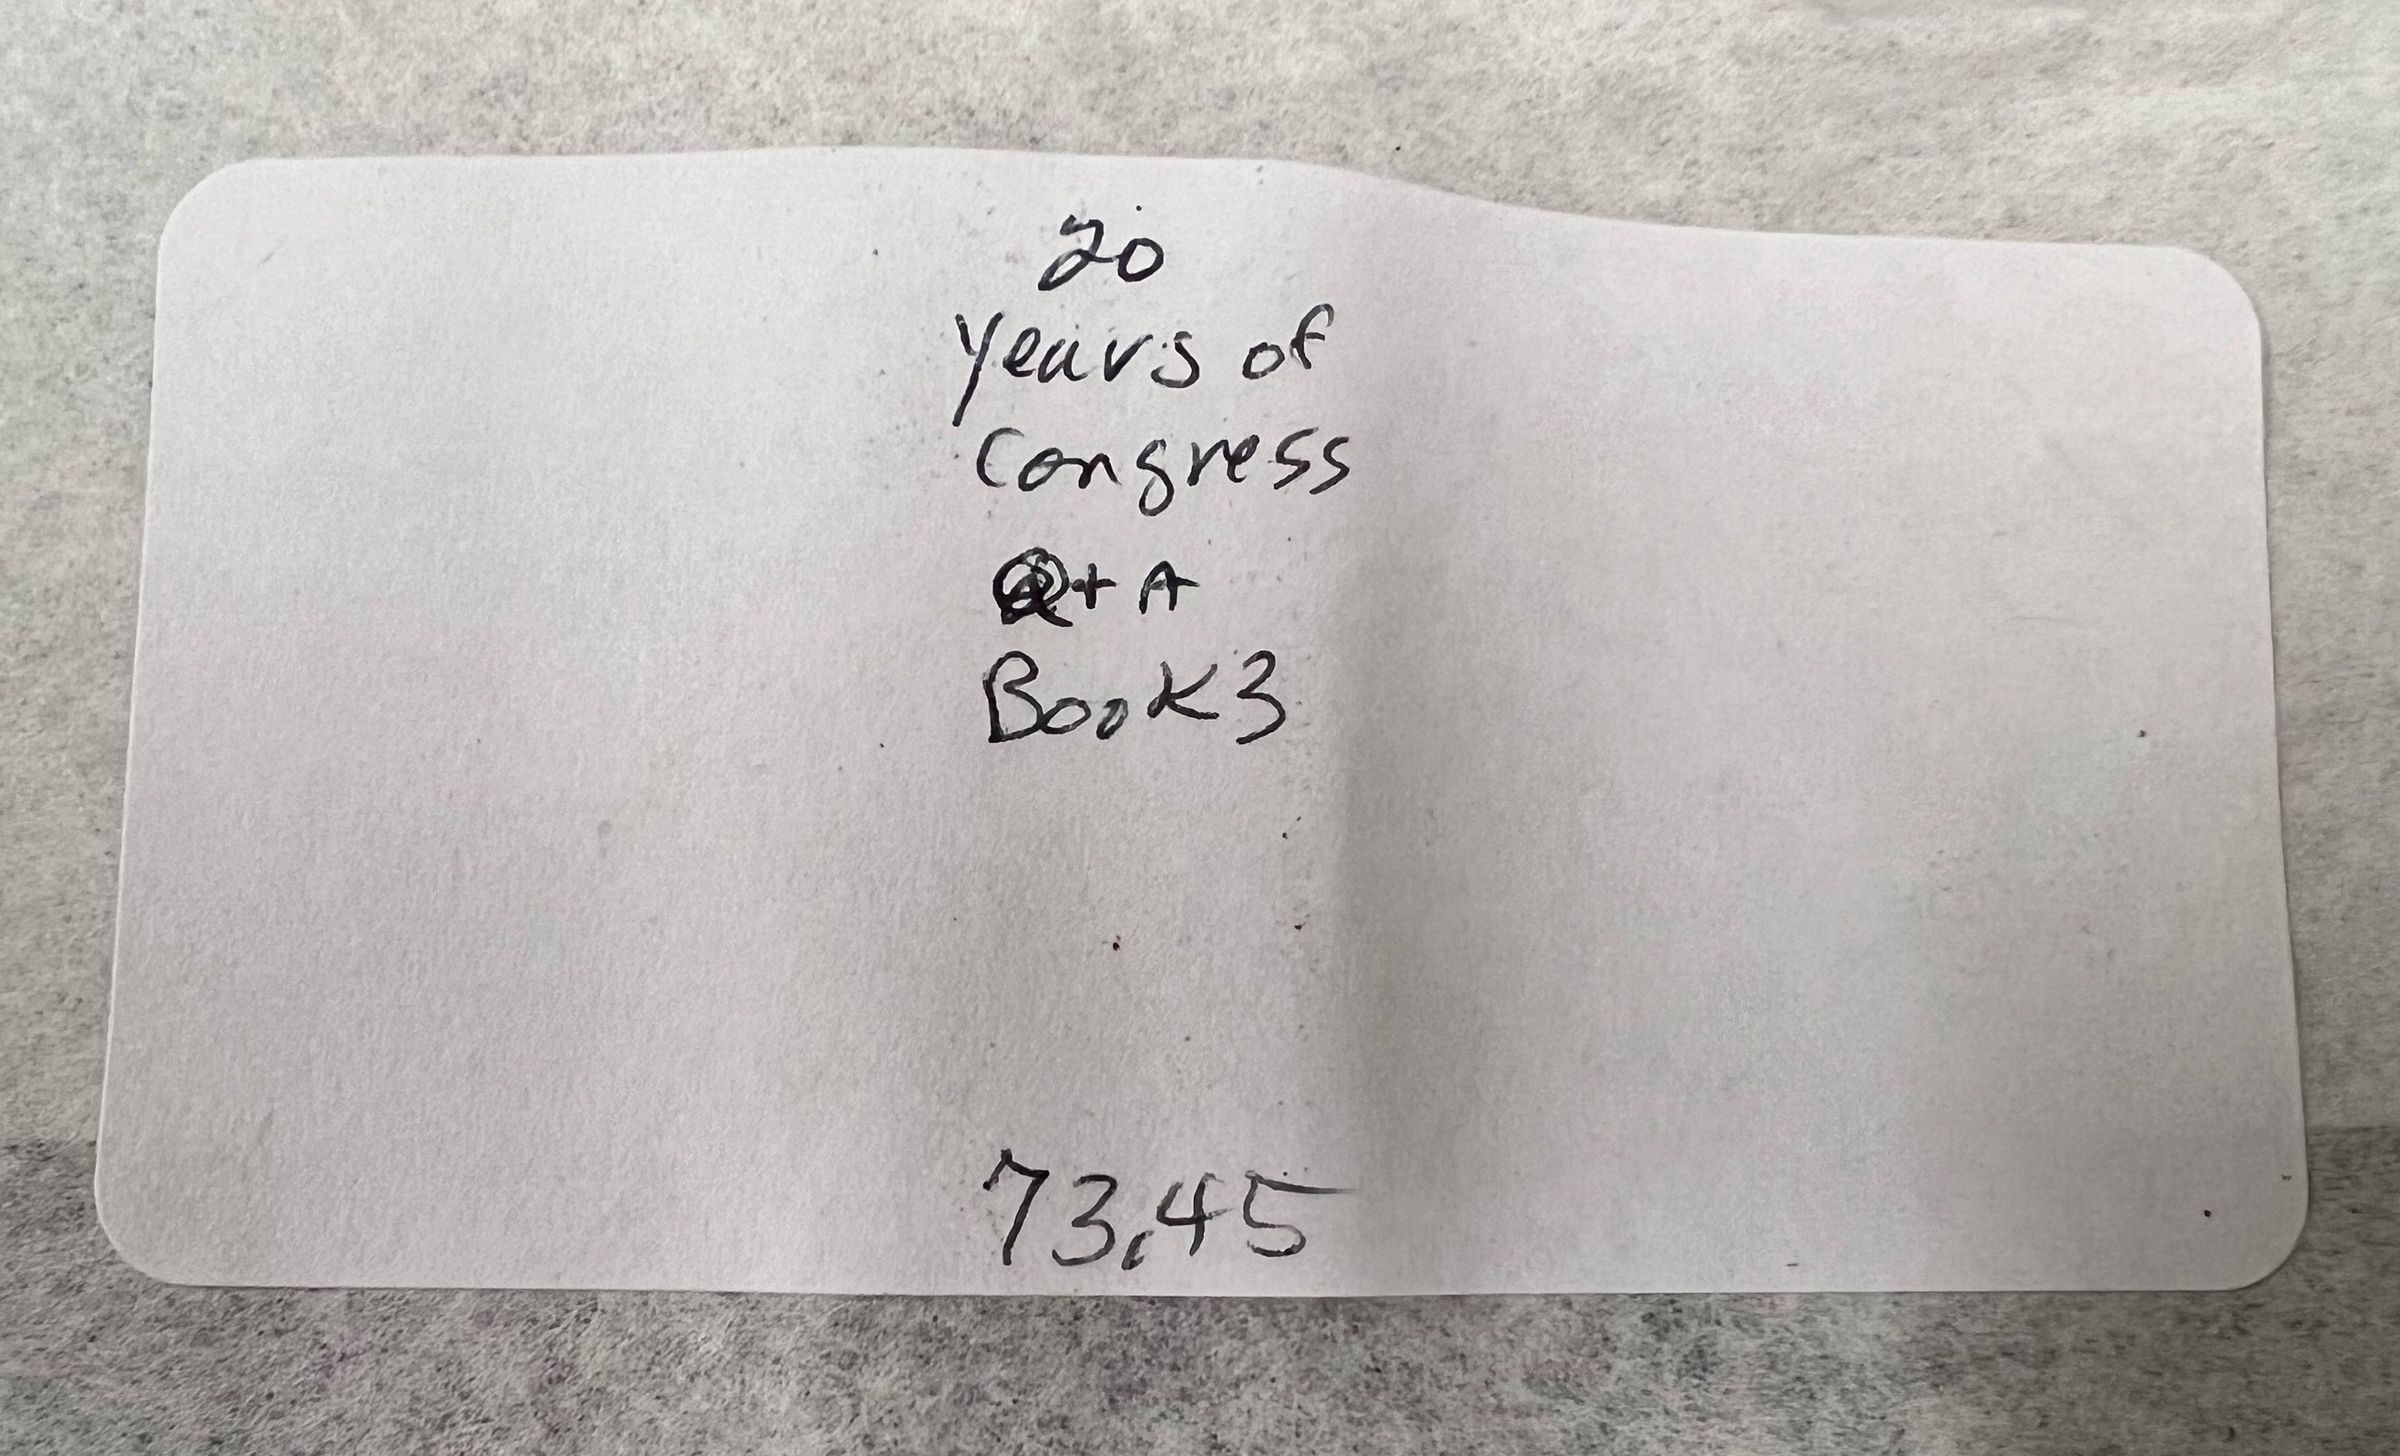 20
years of
Congress
Q + A
Book 3
73,45